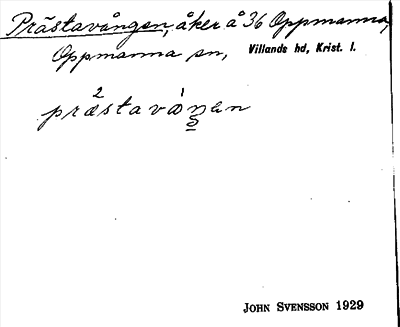 Prästavången, åker å 36 Oppmanna,
Oppmanna sn, Villands hd, Krist. l.
præ²stavá̊ŋ̲en
JOHN SVENSSON 1929